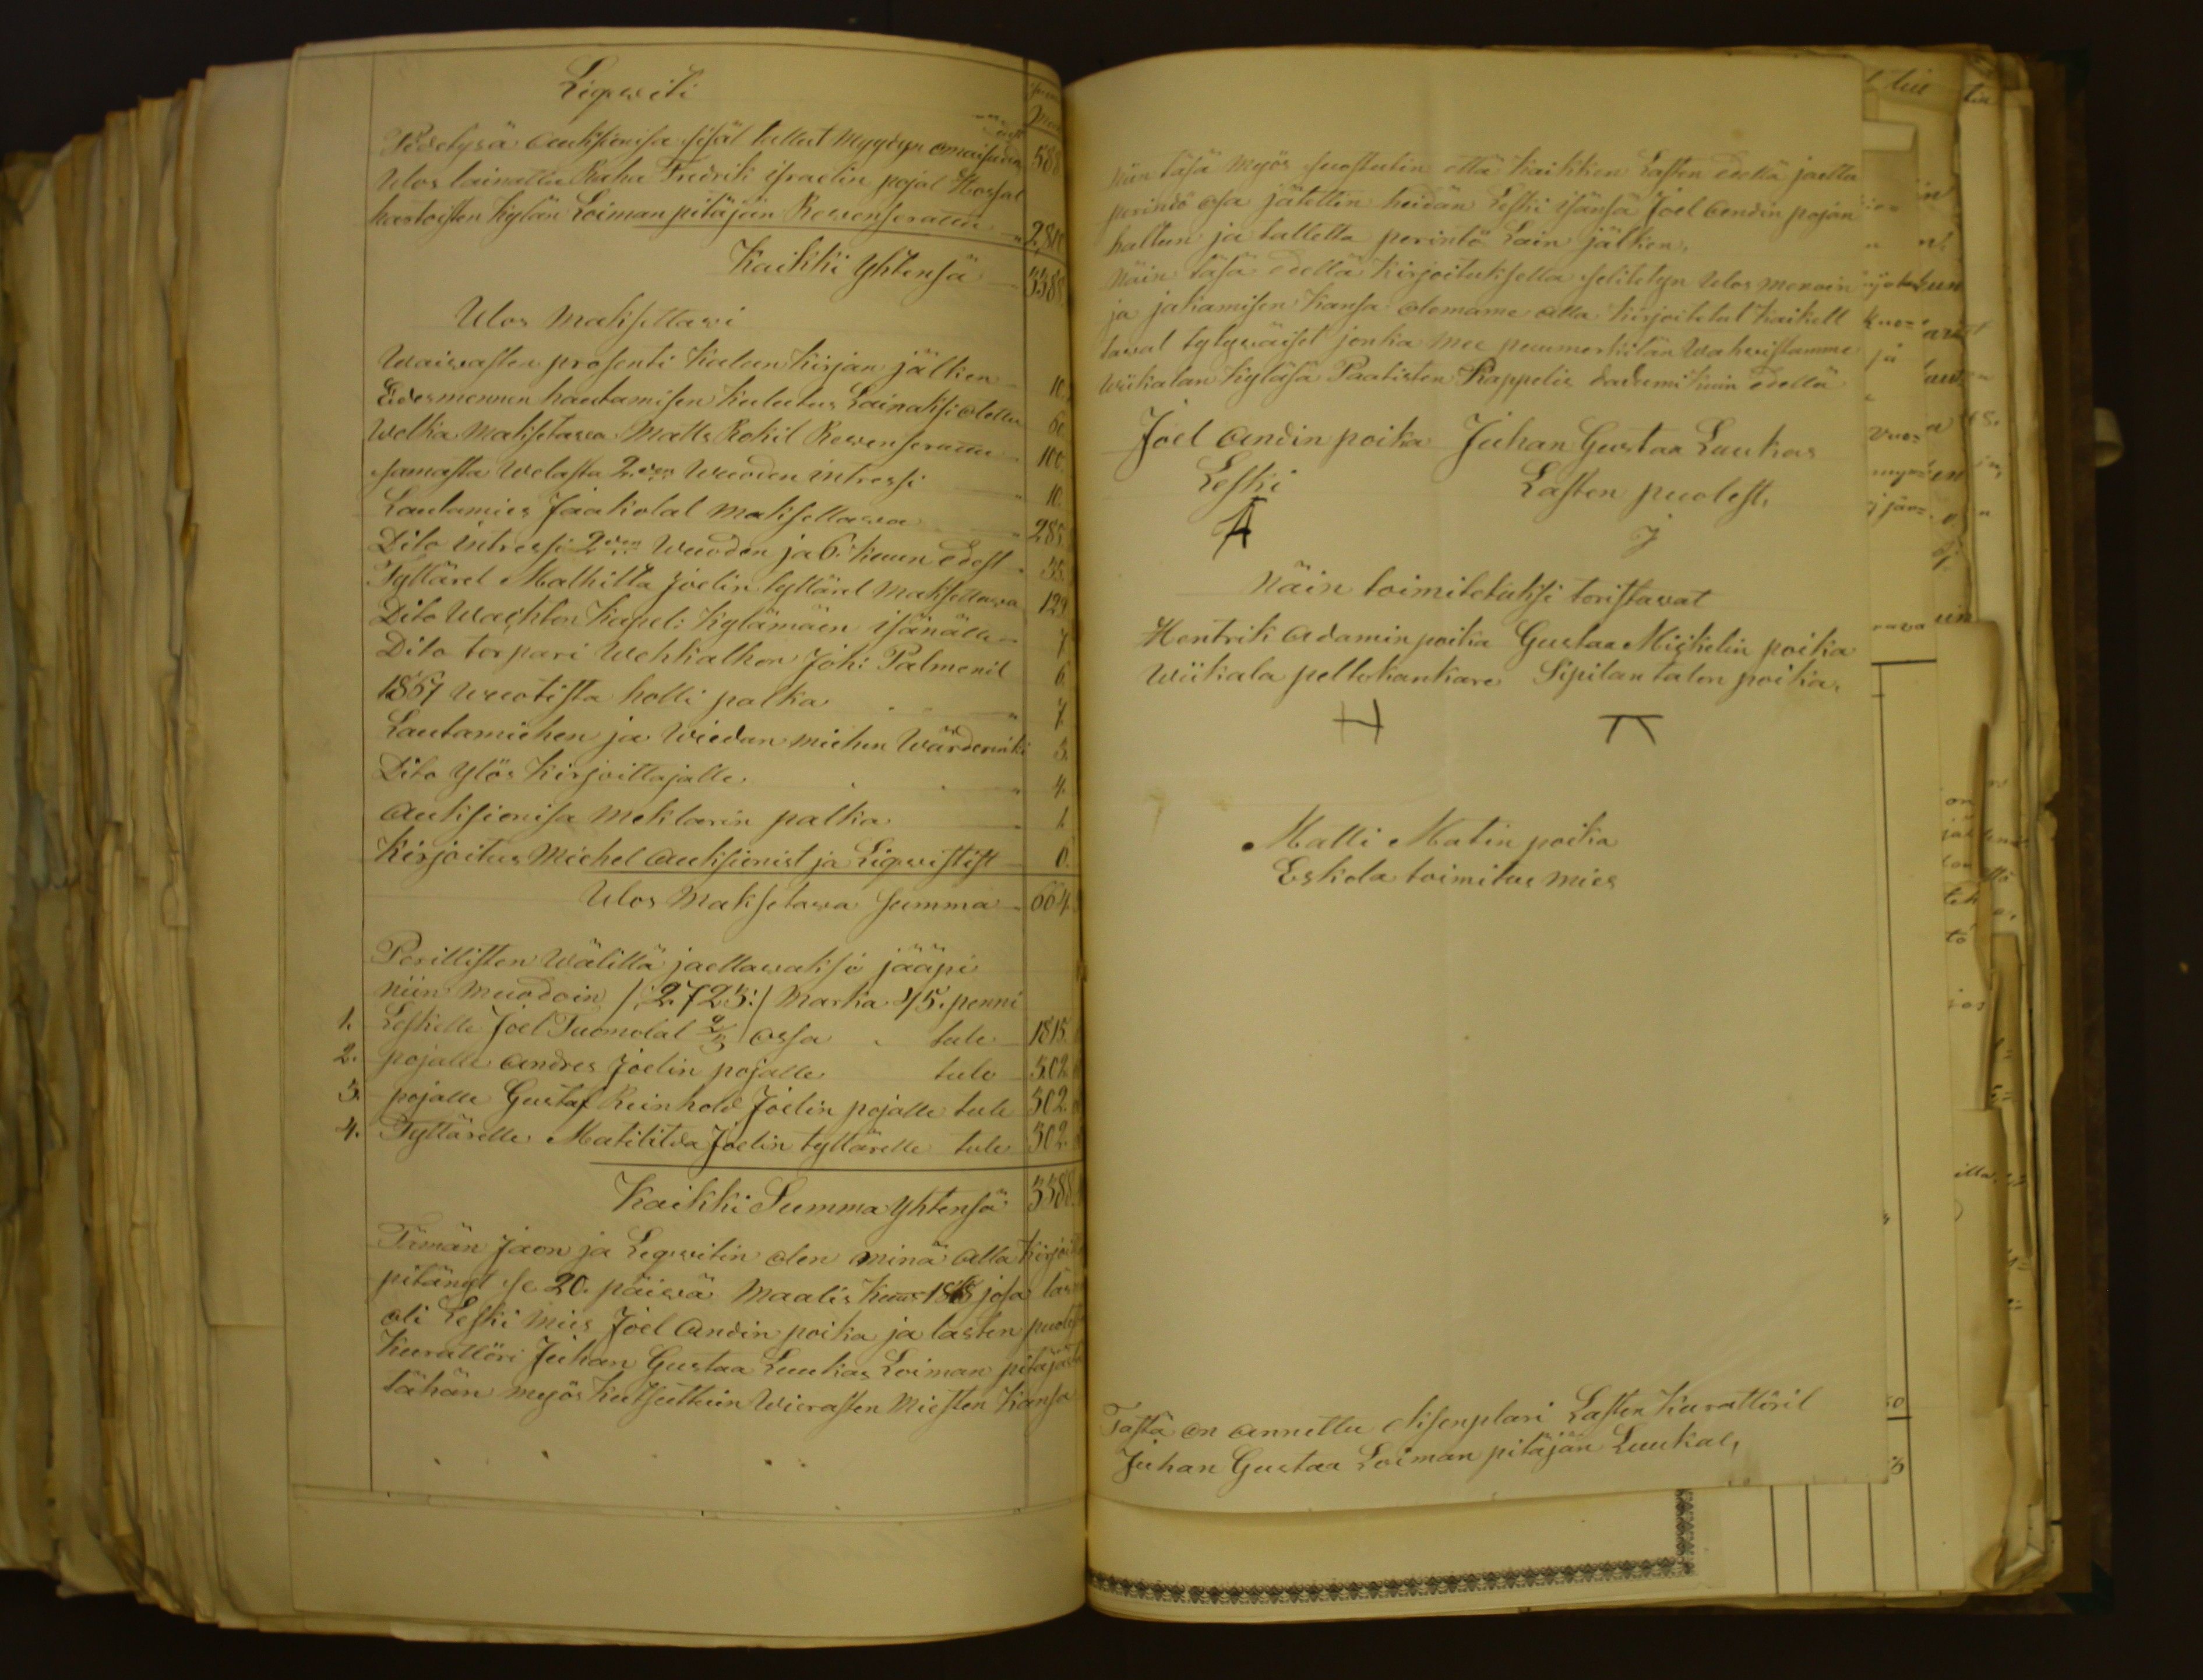 Liqwiti
Pidetysä auktsionisa sisäl tullut Myydyn omaisuden 588
Ulos lainattu Raha Fredrik israelin pojal Kossal
kartoisten Kylän Loiman pitäjän Rewersi 280
Kaikki Yhtensä 3388
Ulos Maksettawi
Waiwasten prosenti Kaluun Kirjan jälken 10.
Edesmennen hautamisen Kulutus Lainaksi otettu 60
Welka Maksetawa Matts Rokil Rewersi 100.
samasta Welasta 2.den Wuoden intressi 10.
Lautamies Jaakolal Maksettawa 285.
Dito intressi 2den Wuoden ja 6. kuun edest 35.
Tyttärel Mathilta Joelin tyttärel Maksettawa 129
Dito Wachton Kapel: Kylämäen isänälle 7
Dito torpari Wehkalhon Joh: Palmenil 6.
1867 Wuotista holli palka 7.
Lautamiehen ja Wiedan miehen Wärderinki 3.
Dito Ylös Kirjoittajalle 4.
Auktsionisa Meklarin palka 1.
Kirjoitus Michel Auktsionist ja Liqwistist 0.
Ulos Maksetawa Summa 664.
Perillisten Wälillä jaettawaksi jääpi
niin muodoin /: 2723:/ Marka 45. penni
1. Leskelle Joel Tuomolal 2/3 ossa tule 1815.
2. pojalle Andres Joelin pojalle tule 302.
3. pojalle Gustaf Reinhold Joelin pojalle tule 302.
4. Tyttärelle Matilitda Joelin tyttärelle tule 302.
Kaikki Summa Yhtensä 3388.
Tämän Jaon ja Leqwitin olen minä alla Kirjoit
pitänyt se 20. päiwä Maalis Kuus 1868 josa läs
oli Leski Mies Joel Andin poika ja lasten puolest
Kurattöri Juhan Gustaa Luukas Loiman pitäjäst
tähän myös Kutsuttuin Wierasten Miesten Kansa
Niin täsä Myös suostutin että Kaikken Lasten edellä jaettu
perintö osa jätettin heidän Leski isänsä Joel Andin pojan
haltun ja tallella perintö Lain jälken,
Näin täsä edellä Kirjoituksella selitetyn Ulos menoin
ja jakamisen Kansa olemame alla Kirjoitetut Kaikell
tawal tytywäiset jonka Mee puumerkilän Wahwistamme
Wiikalan Kyläsä Paatisten Kappelis dadumi kuin edellä
Joel Andin poika Juhan Gustaa Luukas
Leski Lasten puolest,
A J
Näin toimitetuksi toristawat
Hentrik Adamin poika Gustaa Mickelin poika
Wiikala peltokankare Sipilan talon poika,
H
Matti Matin poika
Eskola toimitus mies
Tästä on annettu Eksenplari Lasten Kurattöril
Juhan Gustaa Loiman pitäjän Luukal,